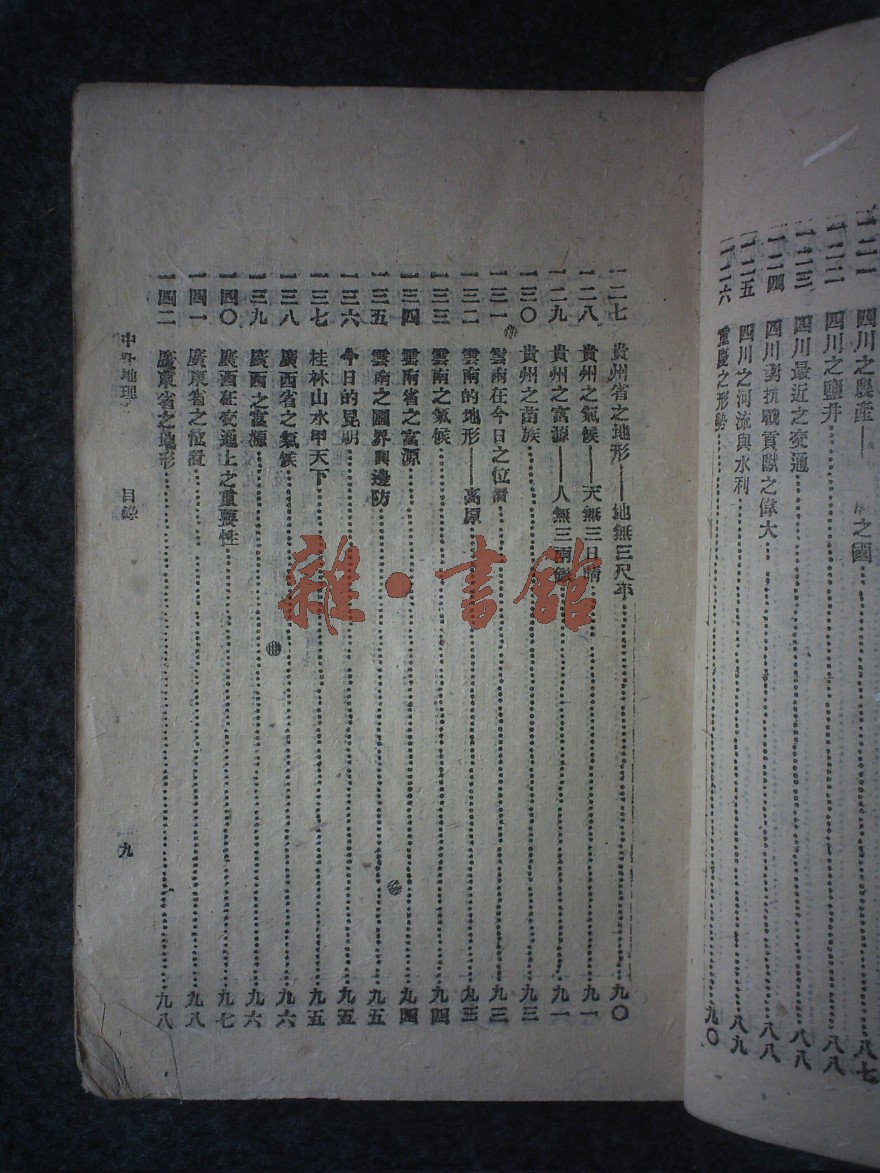 一二一 四川之農產—— 之國 八七
一二二 四川之鹽井 八八
一二三 四川最近之交通 八八
一二四 四川對抗戰貢獻之偉大 八八
一二五 四川之河流與水利 八九
一二六 重慶之形勢 九〇
一二七 貴州省之地形——地無三尺平 九〇
一二八 貴州之氣候——天無三日晴 九一
一二九 貴州之富源——人無三兩銀 九一
一三〇 貴州之苗族 九三
一三一 雲南在今日之位置 九三
一三二 雲南的地形——高原 九三
一三三 雲南之氣候 九四
一三四 雲南省之富源 九四
一三五 雲南之國界與邊防 九五
一三六 今日的昆明 九五
一三七 桂林山水甲天下 九五
一三八 廣西省之氣候 九六
一三九 廣西之富源 九六
一四〇 廣西在交通上之重要性 九七
一四一 廣東省之位置 九八
一四二 廣東省之地形 九八
中外地理 目錄 九
雜·書館